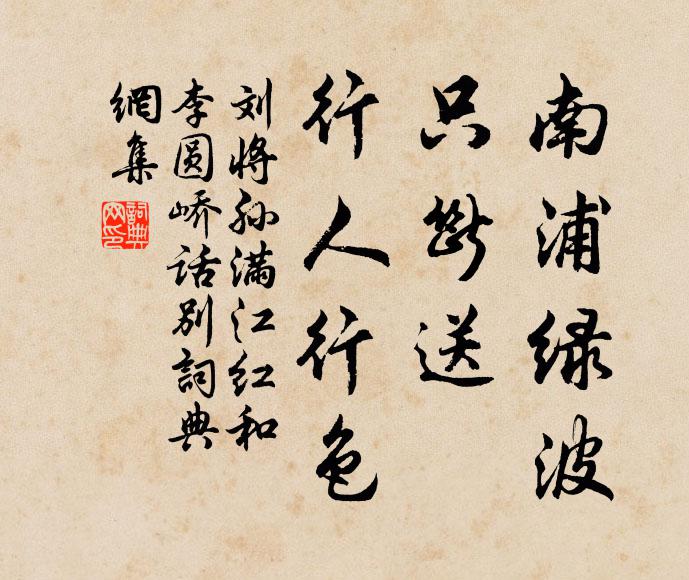 南浦绿波
只断送
行人行色
刘将孙满江红和
李圆峤话别詞典
網集
詞典
网印